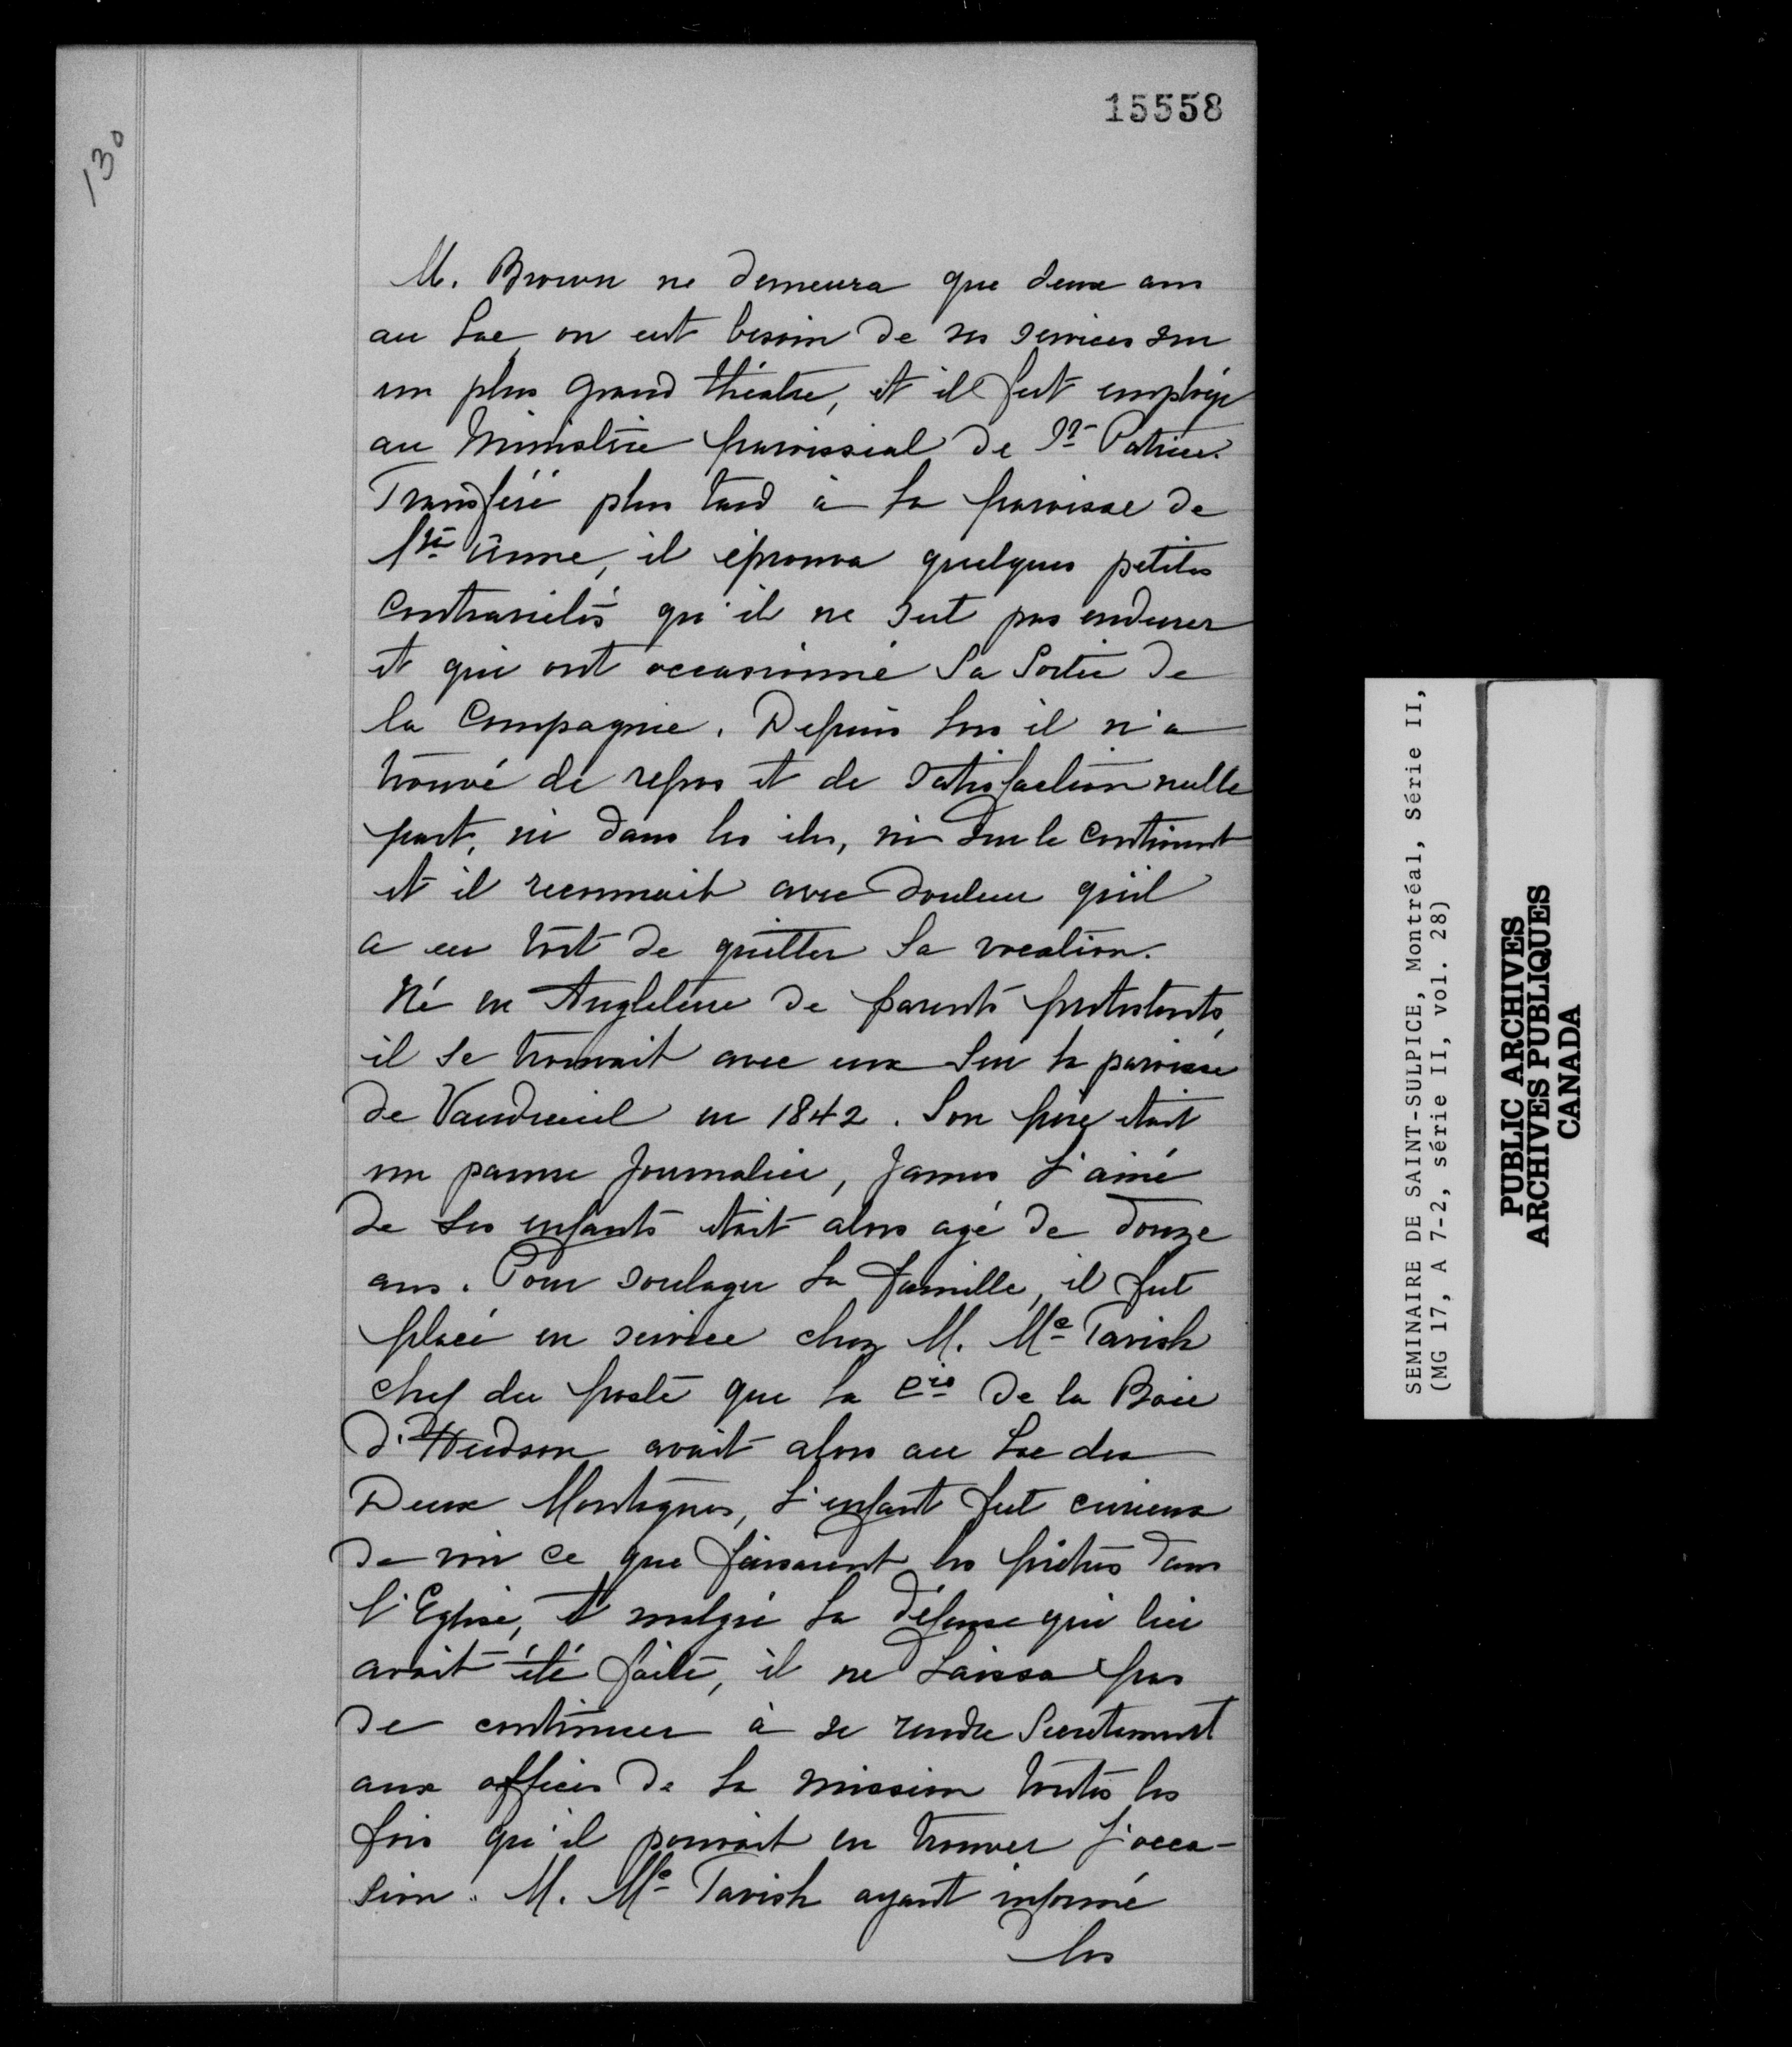 15558
130
M. Brown ne demeura que deux ans
au Lac, on eut besoin de ses services sur
un plus grand théatre, et il fut employé
au Ministère paroissial de St Patrice.
Transféré plus tard à la paroisse de
Ste Anne, il éprouva quelques petites
contrariétés qu'il ne sut pas endurer
et qui ont occasionné sa sortie de
la Compagnie. Depuis lors il n'a
trouvé de repos et de satisfaction nulle
part, ni dans les iles, ni sur le continent
et il reconnait avec douleur qu'il
a eu tort de quitter sa vocation.
Né en Angleterre de parents protestants,
il se trouvait avec eux sur la paroisse
de Vaudreuil en 1842. Son père était
un pauvre journalier, James l'ainé
de ses enfants était alors agé de douze
ans. Pour soulager la famille, il fut
placé en service chez M. Mc Tavish
chef du poste que la Cie de la Baie
d'Hudson avait alors au Lac des
Deux Montagnes, l'enfant fut curieux
de voir ce que faisaient les prêtres dans
l'Eglise, et malgré la défense qui lui
avait été faite, il ne laissa pas
de continuer à se rendre secretement
aux offices de la mission toutes les
fois qu'il pouvait en trouver l'occa-
sion. M. Mc Tavish ayant informé
les
SEMINAIRE DE SAINT-SULPICE, Montréal, Série II,
(MG 17, A 7-2, série II, vol. 28)
PUBLIC ARCHIVES
ARCHIVES PUBLIQUES
CANADA